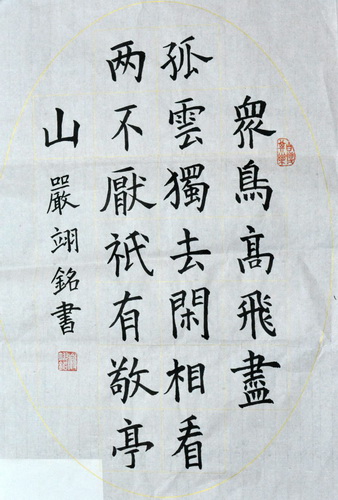 眾鳥高飛盡
孤雲獨去閑相看
两不厭祇有敬亭
山
嚴翊銘書